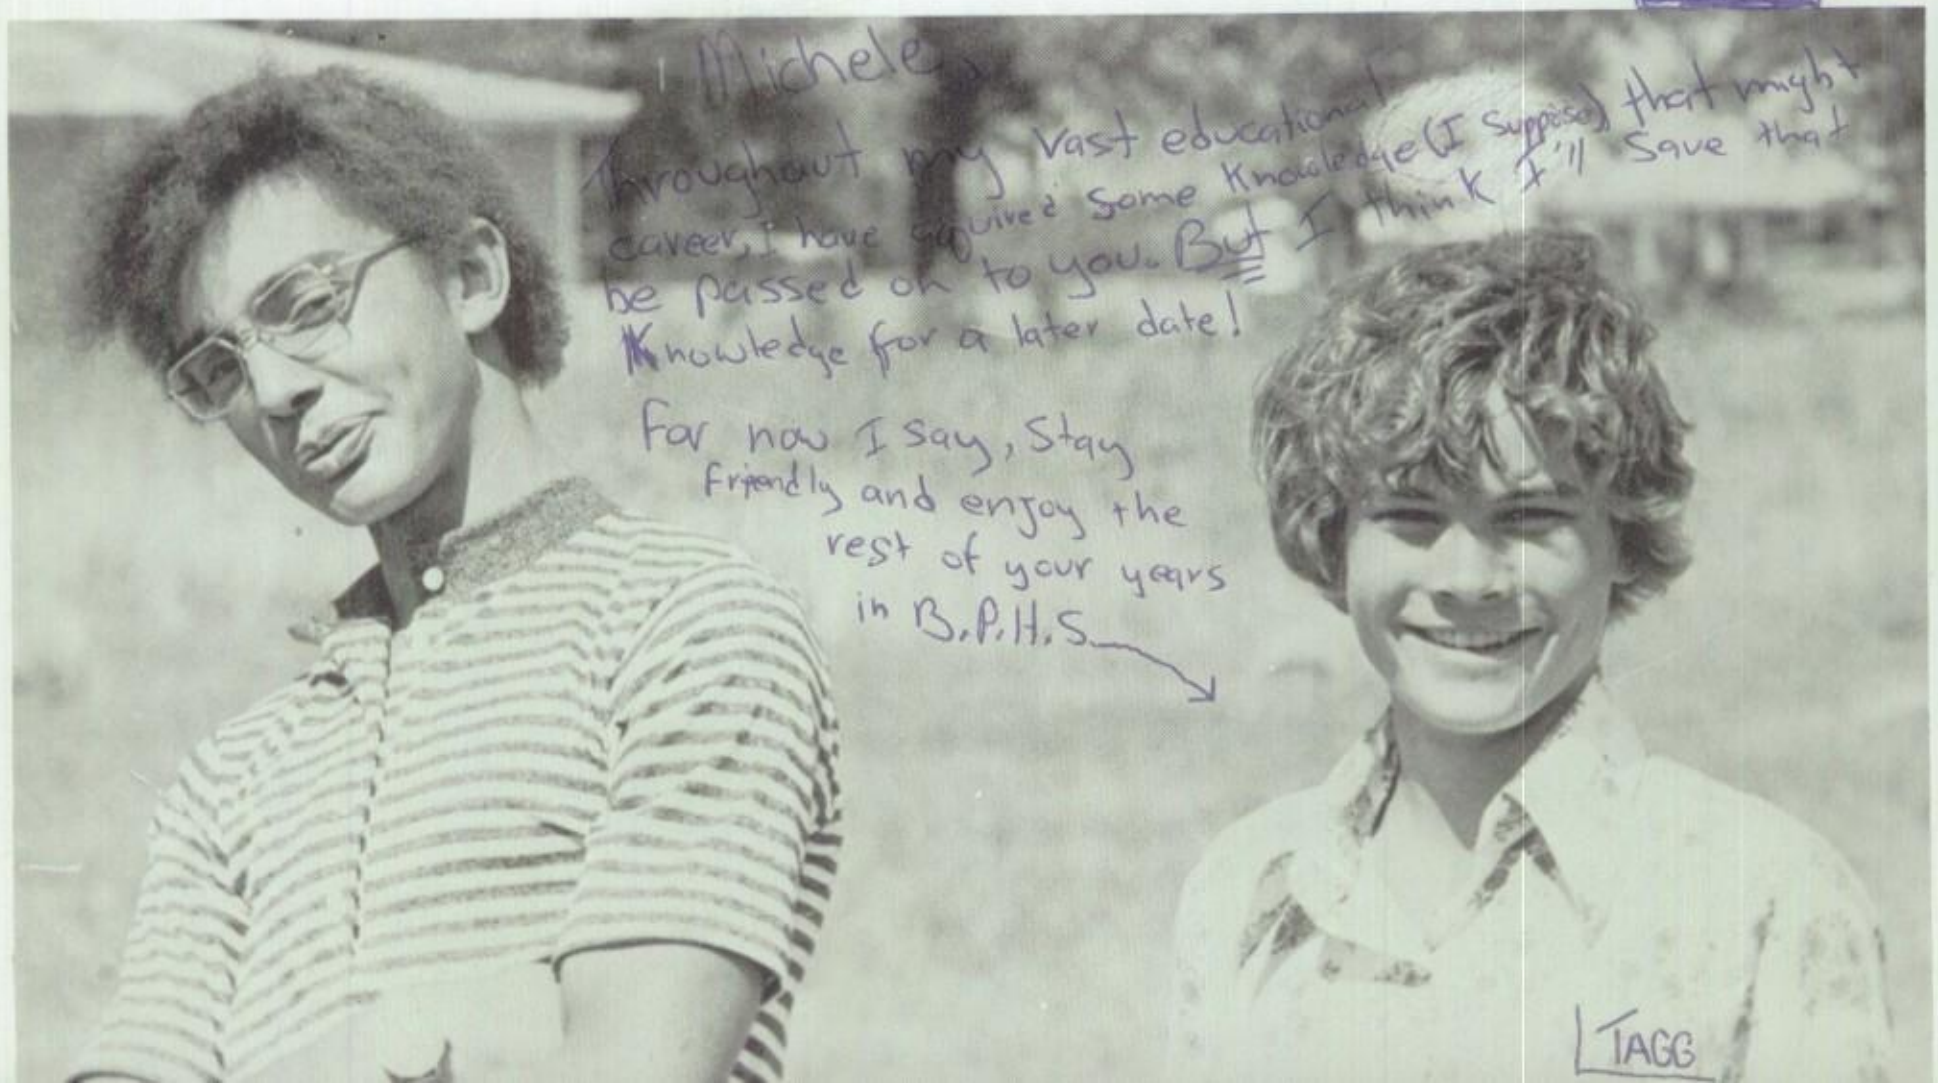 Michele,
Throughout my vast educational
career, I have aquired some Knowledge (I suppose) that might
be passed on to you. But I think I'll save that
Knowledge for a later date!
For now I say, Stay
friendly and enjoy the
rest of your years
in B.P.H.S.
TAGG